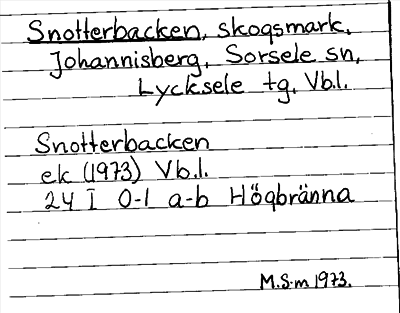 Snotterbacken, skogsmark,
Johannisberg, Sorsele sn,
Lycksele tg, Vb.l.
Snotterbacken
ek (1973) Vb.l.
24 I 0-1 a-b Högbränna
M.S-m 1973.